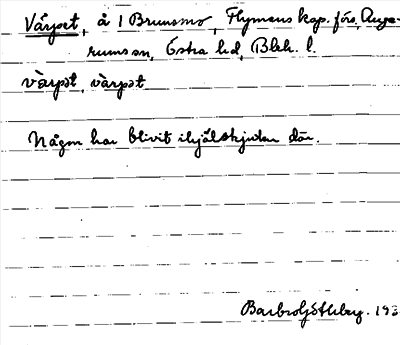 Vårpet, å 1 Brunsmo, Flymens kap. förs, Auge-
rums sn, Östra hd, Blek. l.
vàrpət, vàrpət
Någon har blivit ihjälskjuten där.
Barbro 193